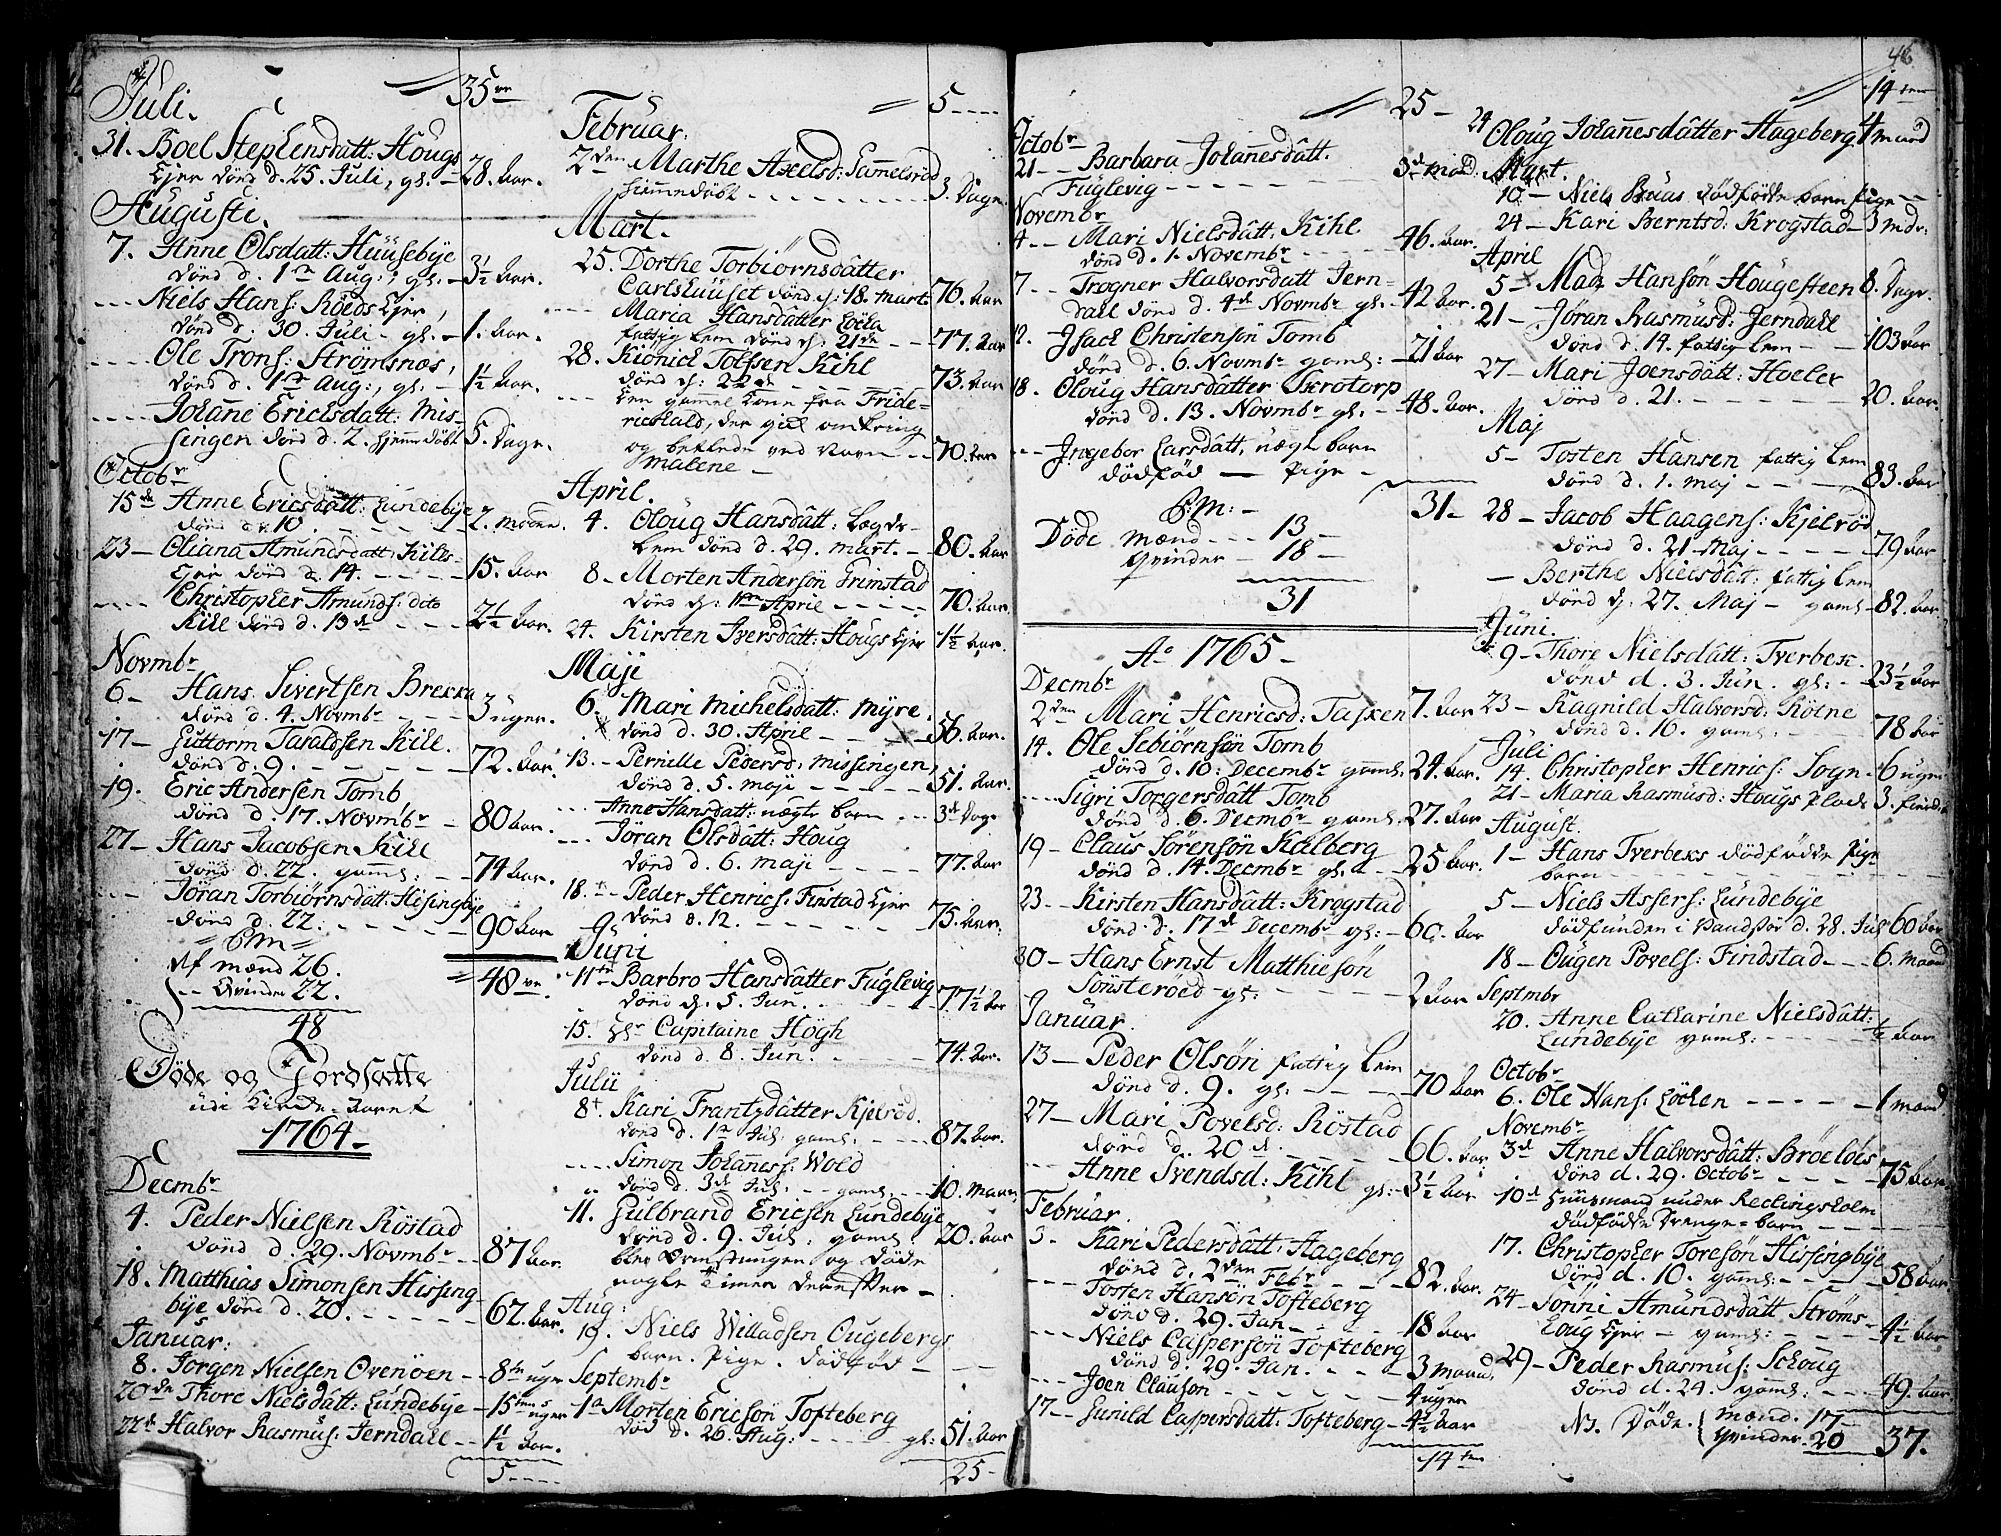 Juli. = 35ve
31. Boel Stephensdatt: Hougs
Ejer dönd d. 25. Juli, gl: - 28. Aar.
Augusti.
7. Anne Olsdatt: Huusebye
dönd d. 1te Aug:, gl: - 3½ Aar.
--- Niels Hans: Röeds Ejer,
dönd d. 30. Juli - gl. - 1. Aar.
--- Ole Trons: Strömsnæs,
dönd d. 1te Aug:, gl: - 1½ Aar.
--- Johane Ericksdatt: Mis-
singen dönd d. 2. hjemedöbt 5. Dage.
Octobr
15de Anne Ericsdatt: Lundebye
dönd d. 10. - - - 2. Maaned.
23 - Oliana Amundsdatt: Kihls-
Ejer dönd d. 14. - - - 15. Aar
--- Christopher Amunds: dito
Kihl dönd d. 13de - - - 2½ Aar.
Novmbr
6 - Hans Sivertsen Brekka
dönd d. 4. Novmbr - - - 3 uger.
17 - Guttorm Taraldsen Kihl.
dönd d. 9. - - - 72. Aar.
19. Eric Andersen Tomb
dönd d. 17. Novmbr - 80 Aar.
27 - Hans Jacobsen Kihl
dönd d. 22. gaml: - - 74 Aar.
--- Jöran Torbiörnsdatt: Hissingbye
dönd d. 22. - - - 90 Aar
= S:M =
Af Mænd 26.
-- Qvinder 22. = 48ve.
48
Döde og Jordsatte
udi Kirke-Aaret
1764 -
Decmbr
4. Peder Nielsen Röstad
dönd d. 29. Novmbr - - 87 Aar.
18. Matthias Simonsen Hissing-
bye dönd d. 20. - - - 67. Aar.
Januar:
8. Jorgen Nielsen Ovenöen - - 8te uger
20de Thore Nielsdatt: Lundebye - 15ten uger
22de Halvor Rasmus: Jerndahl - - 1½ Aar.
5 ----
Februar. = 5 ----
2den Marthe Axelsd: Sammelsröd
hiemmedöbt - - - 3. Dage.
Mart.
25. Dorthe Torbiörnsdatter
Carlshuuset dönd d: 18. Mart: 76. Aar
--- Maria Hansdatter Löcka
fattig Lem dönd d: 21de - - 77. Aar
28. Kiönick Tolfsen Kihl
dönd d: 22de - - - 73. Aar
--- Een gammel Kone fra Fride-
richshald, der gik omkring
og betlede ved Navn - - 70. Aar
Malene -
April.
4. Oloug Hansdatt: Lægds-
Lem dönd d. 29. Mart. - 80. Aar
8 - Morten Andersön Grimstad
dönd d: 1te April - - - 70. Aar.
24. Kirsten Iversdatt: Hougs Ejer 1½ Aar.
Maji
6. Mari Michelsdatt: Myre,
dönd d. 30. April - - - 56. Aar.
13. - Pernille Pedersd: Missengen,
dönd d. 5. Maji - - - 51. Aar.
--- Anne Hansdatt: uægte barn - - 3de Dage
--- Jöran Olsdatt: Houg
dönd d. 6. Maji - - - 77. Aar
18. - Peder Henrics: Finstad Ejer
dönd d. 12. - - - 75. Aar.
Juni
11te Barbro Hansdatter Fuglevig
dönd d: 5. Jun. - - - 77½ Aar
15. Hr Capitaine Högh
dönd d. 8. Jun. - - - 74. Aar.
Julii
8t Kari Frantzdatter Kjelröd.
dönd d. 1te Jul: gaml: - - - 87. Aar.
---- Simon Johanness: Wold
dönd d. 3de Jul: - - gaml: - - 10. Maan.
11. Gulbrand Ericsen Lundebye
dönd d. 9. Jul: gaml: 20. Aar
blev Ormstungen og döde
nogle Timer derefter -
Aug:
19. Niels Willadsen Ougebergs
barn. Pige. dödföd - - -
Septembr
1te Morten Ericsön Tofteberg
död d. 26. Aug: - - - gl: 51. Aar
25 -
46
= 25 -
Octobr
21 -- Barbara Johannesdatt.
Fuglevig - - - 3de Maaned.
Novembr
4 -- Mari Nielsdatt: Kihl
dönd d. 1. Novembr - - - 46. Aar.
7 -- Trogner Halvorsdatt Jern-
dahl dönd d. 4de Novmbr gl: 42 Aar.
12. Jsack Christensön Tomb
dönd d. 6. Novmbr gaml: - 21 Aar
18. Oloug Hansdatter Skrotorp
dönd d. 13. Novmbr gl: - 48. Aar.
--- Jngebor Larsdatt, uægte barn
dödföd -- Pige -
S:M: - 31 -
Döde Mænd - - - 13 -
Qvinder - 18 -
31
Ao 1765 -
Decmbr
2den Mari Henricsd: Tasken 7. Aar
14. Ole Sebiörnsön Tomb
dönd d. 10: Decembr gaml: 24. Aar.
--- Sigri Torgersdatt Tomb
dönd d. 6. Decmbr gaml: 27. Aar
19 - Claus Sörensön Kalberg
dönd d. 14. Decmbr gl: - - 25 Aar.
23 - Kirsten Hansdatt: Krogstad
dönd d. 17de Decembr gl: - 60. Aar
30 - Hans Ernst Matthiesön
Sönsteröed - gl: - - - 2 Aar
Januar.
13 - Peder Olsön fattig Lem
dönd d. 9. gl: - - - 70 Aar
27 - Mari Povelsd: Röstad
dönd d. 20de - - - 66. Aar
--- Anne Svendsd: Kihl gl: - 3½ Aar
Februar.
3. Kari Pedersdatt: Hageberg
dönd d. 2den Febr - - - 82. Aar.
--- Tosten Hansön Tofteberg
dönd d. 29. Jan - - - 18 Aar
--- Niels Caspersön Tofteberg
dönd d. 29. Jan. - - - 3 Maan:
--- Joen Clausön - - - 4 uger
17 -- Gunild Caspersdatt: Tofteberg - 4½ Aar
14ten
14ten
24 Oloug Johannesdatter Hageberg 4 Maand
Mart.
10 - Niels Buaas dödfödde barn Pige - -
24 - Kari Berntsd: Krogstad - 3 Mdr:
April
5 - Mads Hansön Hougesteen 8. Dage.
21 - Jöran Rasmusd: Jerndahl
dönd d. 14. fattig Lem - - 103 Aar
27 - Mari Joensdatt: Hoeler
dönd d. 21. - - - 20. Aar.
Maj
5 - Tosten Hansen fattig Lem
dönd d. 1. Maj - - - 83. Aar
28 - Jacob Haagens: Kjelröd
dönd d. 21 Maj - - - 79 Aar
- Berthe Nielsdatt: fattig Lem
dönd d: 27. Maj - gaml: - 82. Aar
Juni.
9 - Thore Nielsdatt: Tverbek
dönd d. 3. Jun. gl: - 23½ Aar
23 - Ragnild Halvorsd: Kölne
dönd d. 16. gaml: - - - 78 Aar
Juli
14. Christopher Henrics: Sogn - 6 uger
21 - Maria Rasmusd: Hougs Plads 3. fierdb
August.
1 - Hans Tverbeks dödfödde Pige
barn - - -
5 - Niels Assers: Lundebye
dödfunden i Vandstör d. 28. Jul 60 Aar
18 - Ougen Povels: Findstad - - - 6. Maand
Septmbr
20. Anne Catharine Nielsdatt:
Lundebye gaml: - - - ½ Aar
Octobr
6. Ole Hans: Löcken - - - 1 Maand
Novembr
3de Anne Halvorsdatt: Bröeldes
dönd d. 29. Octobr - - - 75 Aar.
10de Huusmand under Reclingsholm
dödfödde Drenge-barn - - -
17. Christopher Toresön Hissingbye
dönd d. 10. gaml: - - - 58 Aar
24 - Jönni Amundsdatt Ströms-
Houg Ejer - gaml: - - - 4½ Aar
29 - Peder Rasmus: Schoug
dönd d. 24. gaml: - - - 49. Aar
N3. Döde. Mænd. 17 -
Qvinder. 20 37.